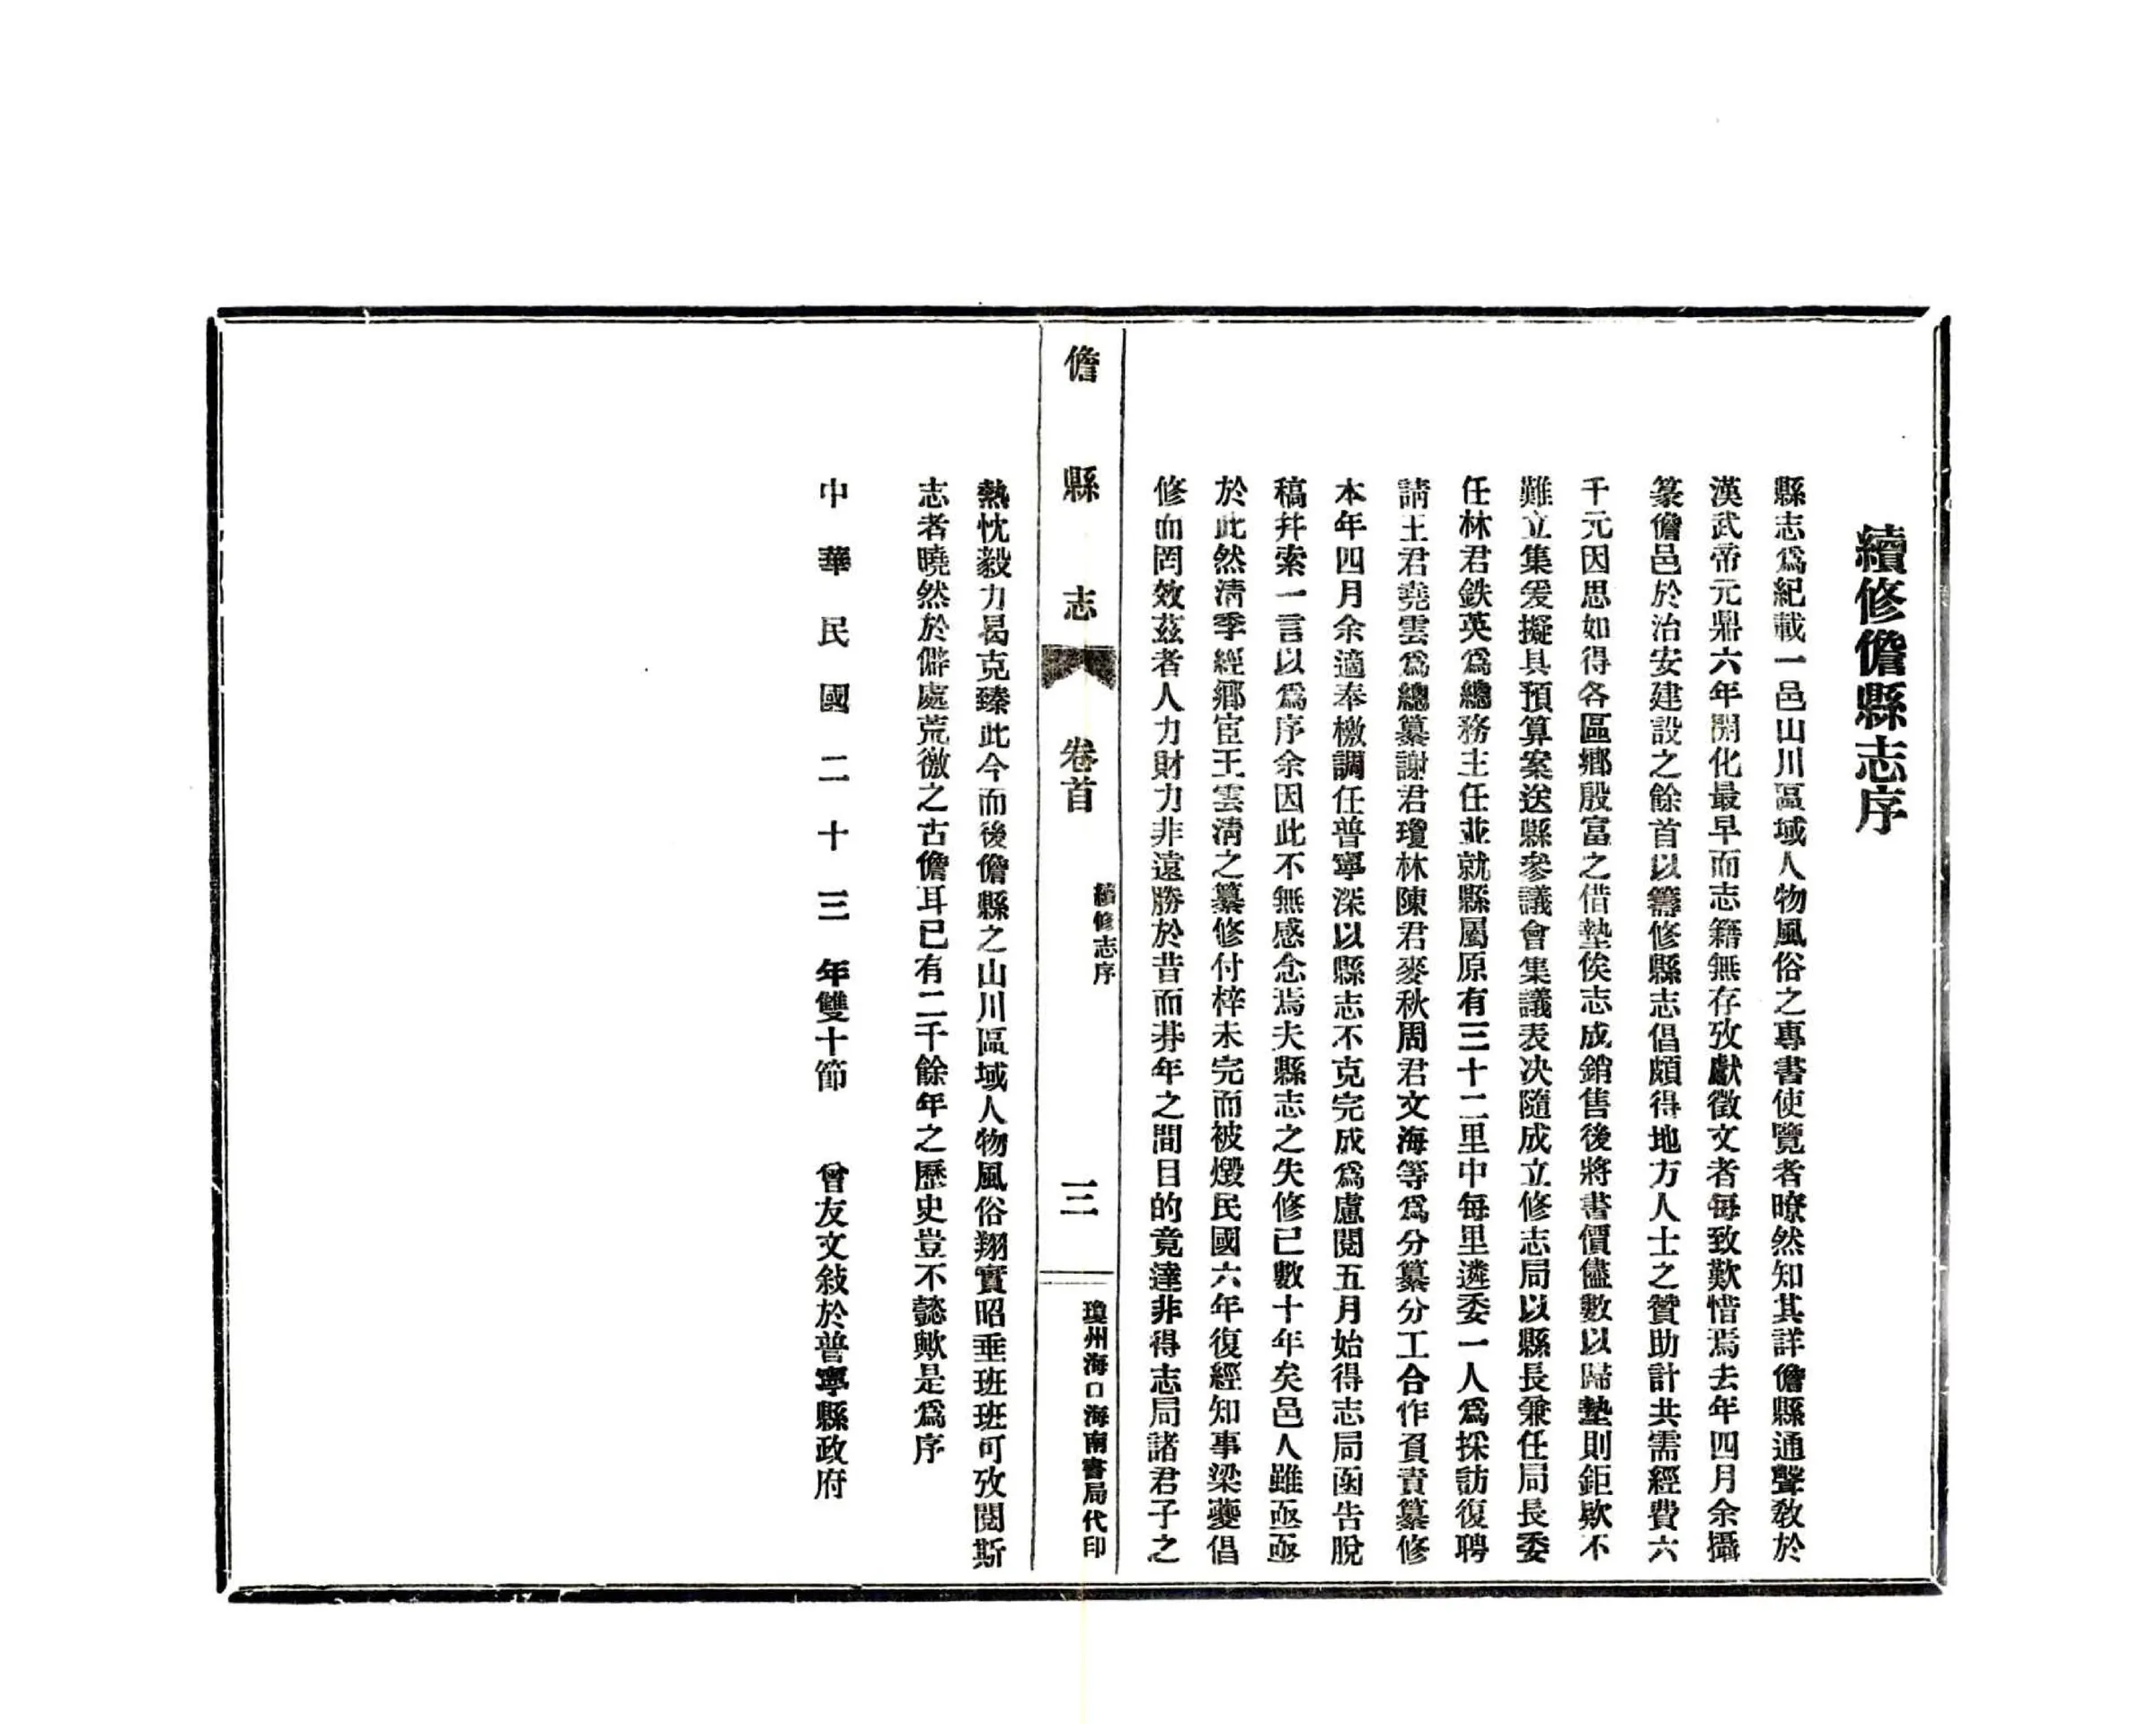 續修儋縣志序
縣志爲紀載一邑山川區域人物風俗之專書使覽者暸然知其詳儋縣通聲敎於
漢武帝元鼎六年開化最早而志籍無存攷獻徵文者每致歎惜焉去年四月余攝
篆儋邑於治安建設之餘首以籌修縣志倡頗得地方人士之贊助計共需經費六
千元因思如得各區鄉殷富之借墊俟志成銷售後將書價儘數以歸墊則鉅欵不
難立集爰擬具預算案送縣參議會集議表决隨成立修志局以縣長兼任局長委
任林君鉄英爲總務主任並就縣屬原有三十二里中每里遴委一人爲採訪復聘
請王君堯雲爲總纂謝君瓊林陳君麥秋周君文海等爲分纂分工合作負責纂修
本年四月余適奉檄調任普寧深以縣志不克完成爲慮閱五月始得志局函告脫
稿幷索一言以爲序余因此不無感念焉夫縣志之失修已數十年矣邑人雖亟亟
於此然淸季經鄉宦王雲淸之纂修付梓未完而被燬民國六年復經知事梁夔倡
修而罔效茲者人力財力非遠勝於昔而朞年之間目的竟達非得志局諸君子之
儋縣志
卷首
續修志序
三
瓊州海口海南書局代印
熱忱毅力曷克臻此今而後儋縣之山川區域人物風俗翔實昭垂班班可攷閱斯
志者曉然於僻處荒徼之古儋耳已有二千餘年之歷史豈不懿歟是爲序
中華民國二十三年雙十節 曾友文敍於普寧縣政府